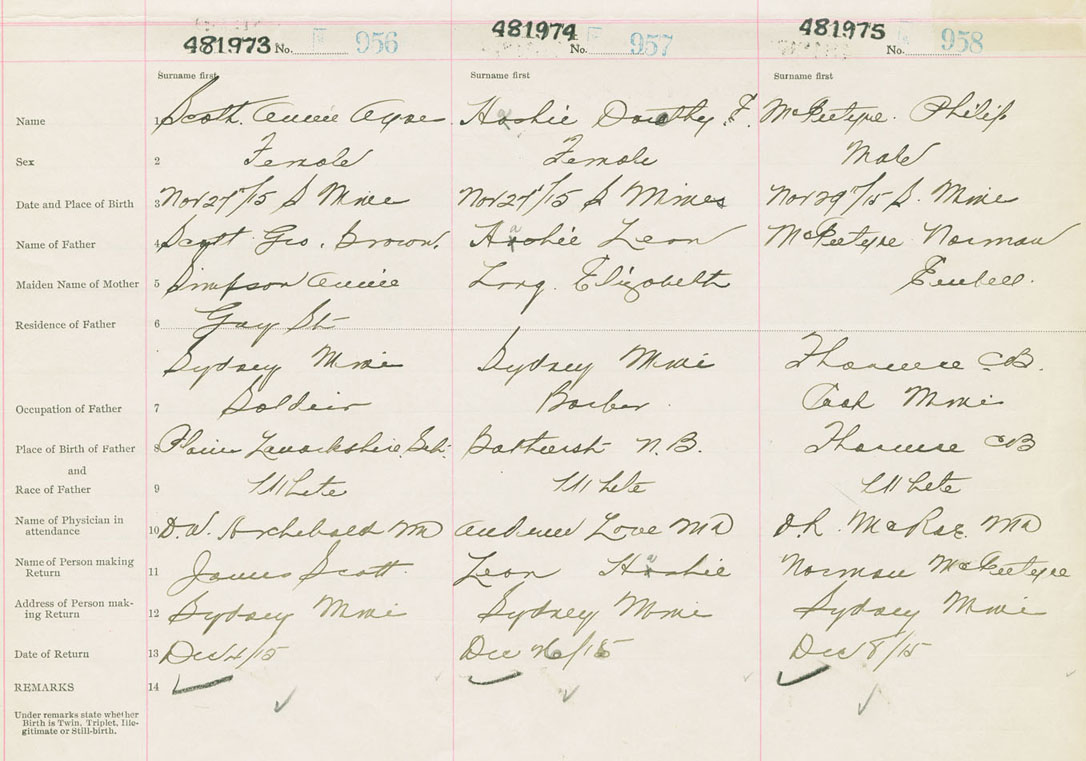 481973 No. 956
481974 No. 957
481975 No. 958
Surname first Surname first Surname first
Name 1 Scott. Annie Agnes Hashie Dorothy F. McPhilip
Sex 2 Female Female Male
Date and Place of Birth 3 Nov 27/15 S Mine Nov 27/15 S Mines Nov 29/15 S. Mine
Name of Father 4 Scott Geo. Brown. Hashie Leon Norman
Maiden Name of Mother 5 Simpson Annie Long. Elizabeth
Residence of Father 6 Gay St
Sydney Mine Sydney Mine Florence CB.
Occupation of Father 7 Soldier Barber Mine
Place of Birth of Father 8 Plains Lanarkshire Bathurst N.B. Florence CB
and
Race of Father 9 White White White
Name of Physician in
attendance 10 D.W. Archibald MD Andrew Love MD McRae. MD
Name of Person making
Return 11 James Scott. Leon Hashie Norman
Address of Person mak-
ing Return 12 Sydney Mine Sydney Mine Sydney Mine
Date of Return 13 Dec 4/15 Dec /15 Dec 8/15
REMARKS 14
Under remarks state whether
Birth is Twin, Triplet, Ille-
gitimate or Still-birth.